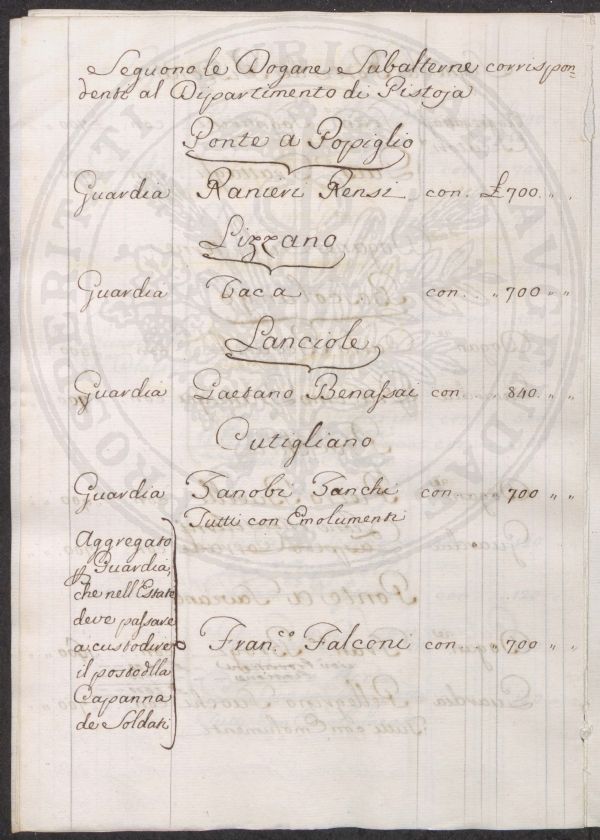 Seguono le Dogane Subalterne corrispon=
denti al Dipartimento di Pistoja
Ponte a Popiglio
Guardia Ranieri Rensi con. £ 700. „ „
Lizzano
Guardia Vaca con. „ 700 „ „
Lanciole
Guardia Gaetano Benassai con „ 840. „ „
Cutigliano
Guardia Zanobi Zanchi con „ 700 „ „
Tutti con Emolumenti
Aggregato
Guardia,
che nell'Estate
deve passare
a custodire
il posto dlla
Capanna
de Soldati
Fran.co Falconi con „ 700 „ „